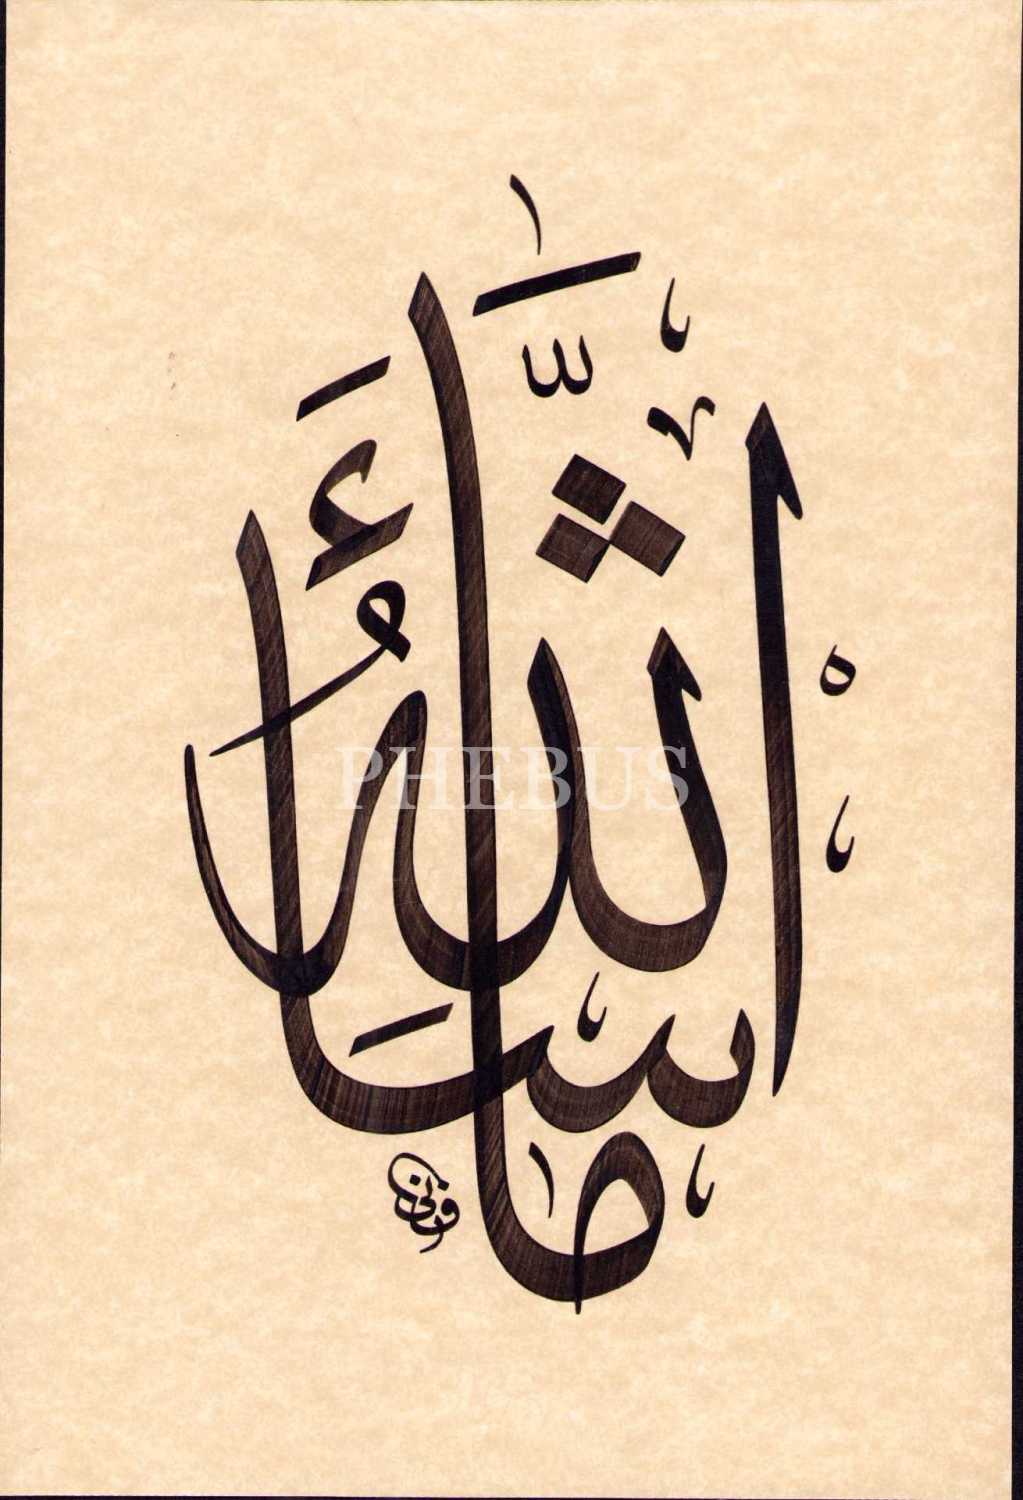 مَا شَاءَ اللّٰهُ
PHEBUS